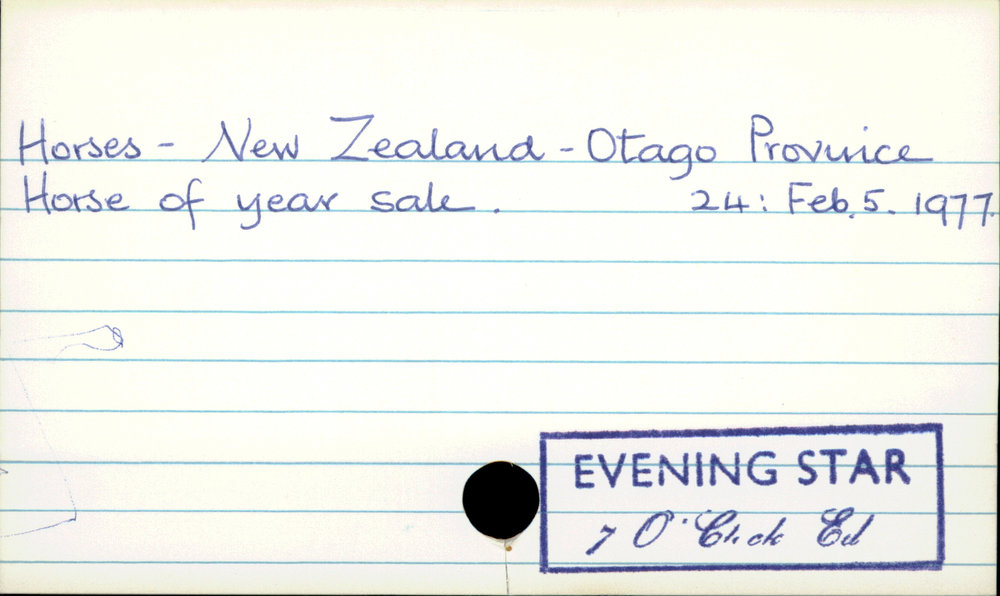 Horses - New Zealand - Otago Province
Horse of year sale. 24: Feb. 5. 1977.
EVENING STAR
7 O'Clock Ed